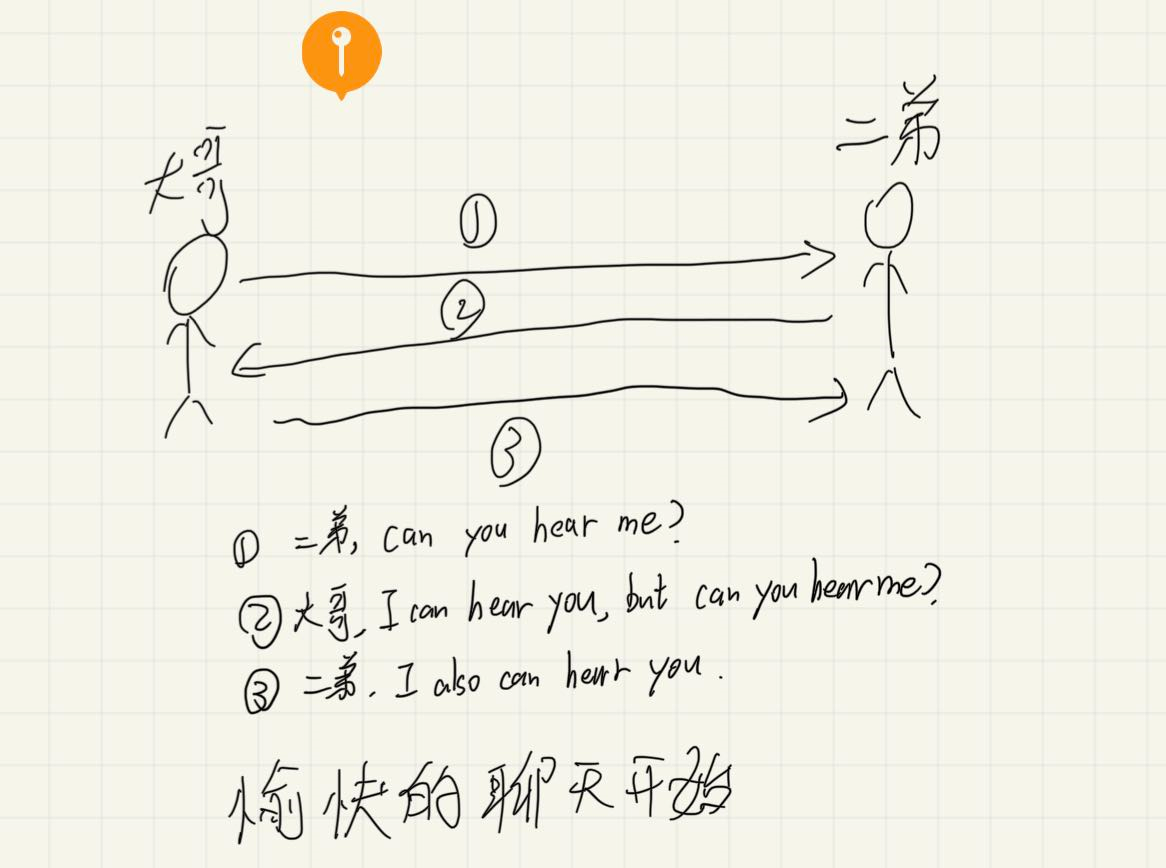 大哥
二弟
①
②
③
① 二弟, can you hear me?
② 大哥, I can hear you, but can you hear me?
③ 二弟, I also can hear you.
愉快的聊天开始